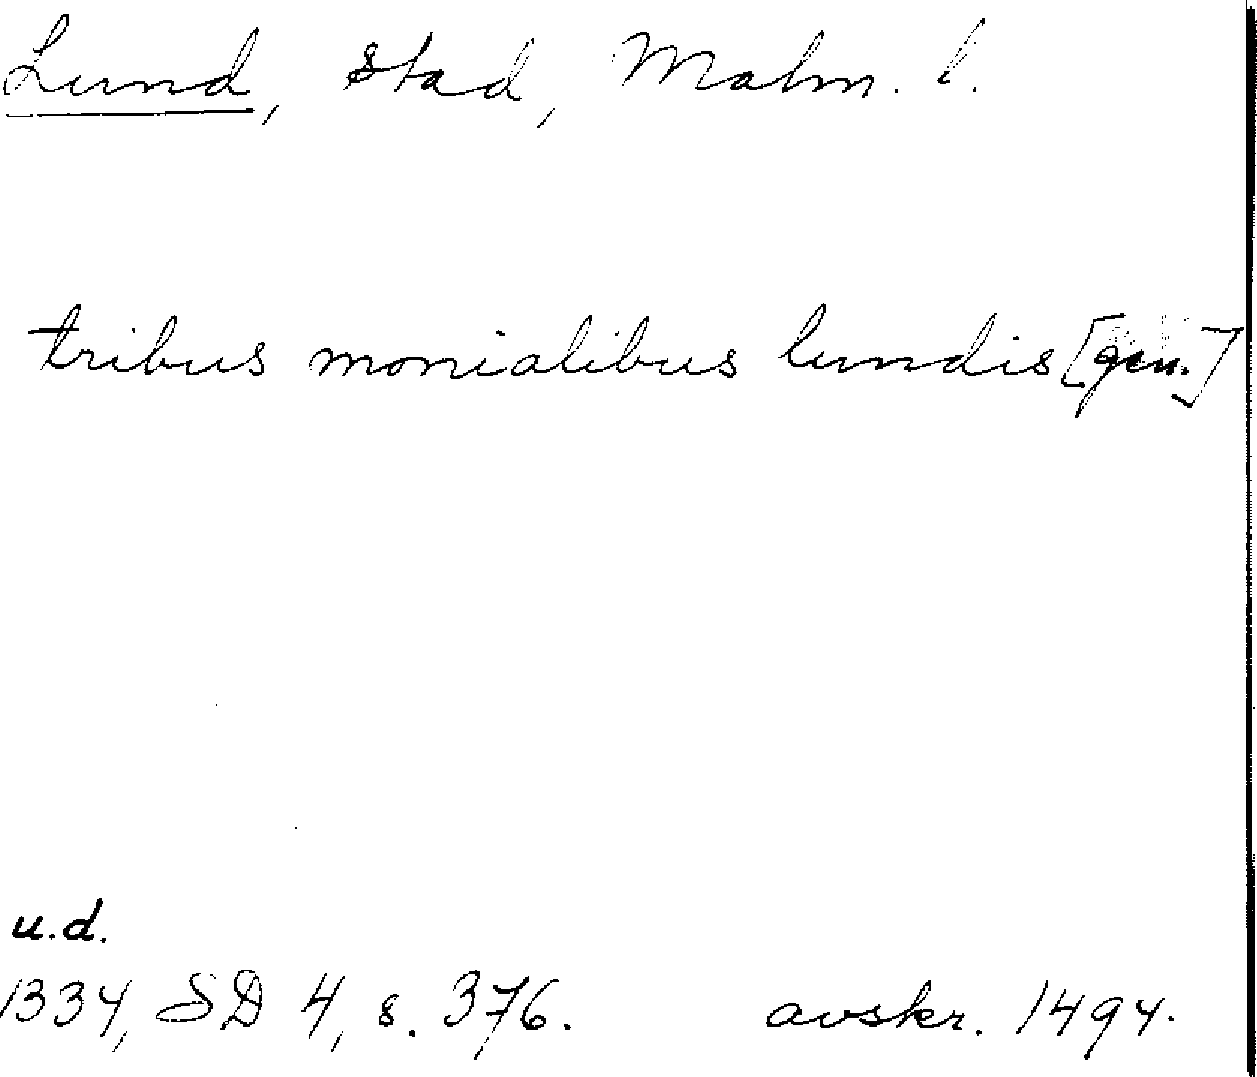 Lund, stad, Malm. l.
tribus monialibus lundis [gen.]
u.d.
1334, SD 4, s. 376. avskr. 1494.